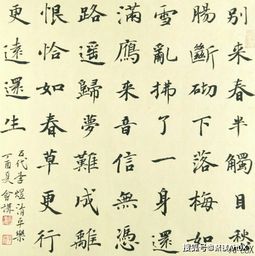 別來春半觸目愁
腸斷砌下落梅如
雪亂拂了一身還
滿鴈來音信無憑
路遙歸夢難成離
恨恰如春草更行
更遠還生
五代李煜清平樂
丁酉夏